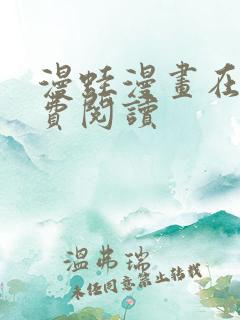 漫蛙漫畫在
費閱讀
溫弗瑞
未经同意禁止转载